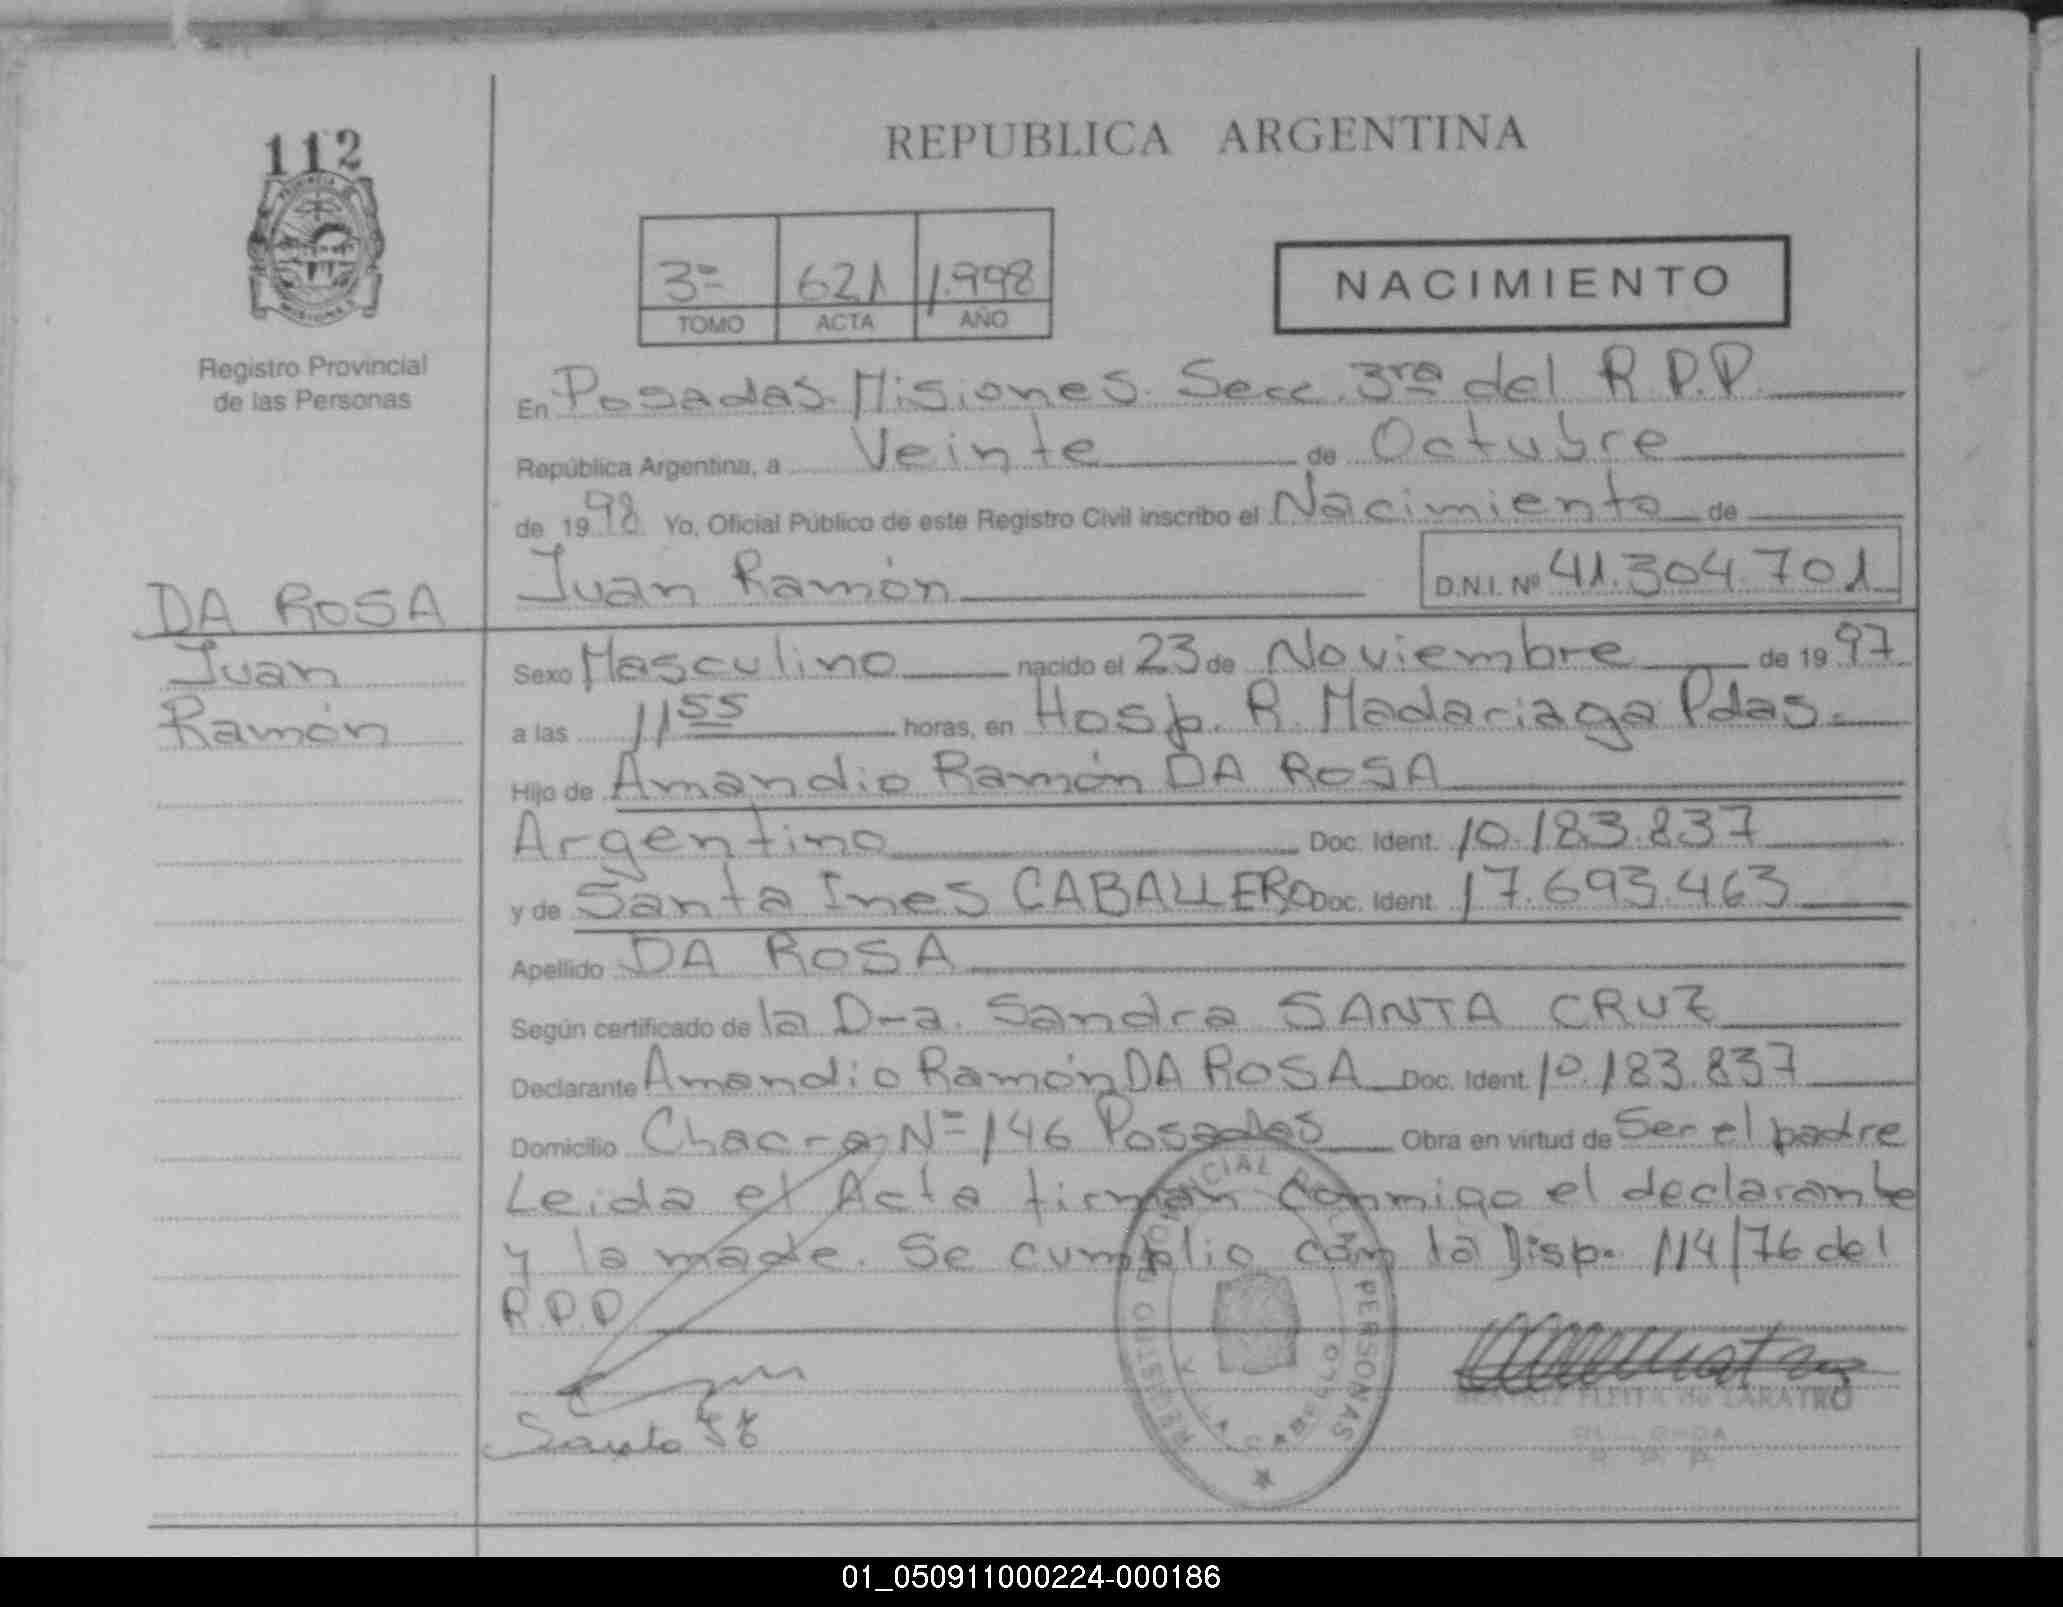 112
PROVINCIA DE
MISIONES
Registro Provincial
de las Personas
REPUBLICA ARGENTINA
3º 621 1.998
TOMO ACTA AÑO
NACIMIENTO
En Posadas. Misiones. Secc. 3ra del R.P.P.
República Argentina, a Veinte de Octubre
de 1998 Yo, Oficial Público de este Registro Civil inscribo el Nacimiento de
Juan Ramón D.N.I. Nº 41.304.701
DA ROSA
Juan
Ramón
Sexo Masculino nacido el 23 de Noviembre de 1997
a las 11 55 horas, en Hosp. R. Madariaga Pdas.
Hijo de Amandio Ramón DA ROSA
Argentino Doc. Ident. 10.183.837
y de Santa Ines CABALLERO Doc. Ident. 17.693.463
Apellido DA ROSA
Según certificado de la D-a. Sandra SANTA CRUZ
Declarante Amandio Ramón DA ROSA Doc. Ident. 10.183.837
Domicilio Chacra Nº 146 Posadas Obra en virtud de Ser el padre
Leida el Acta firman conmigo el declarante
y la made. Se cumplio con la Disp. 114/76 del
R.P.P.
REGISTRO PROVINCIAL DE LAS PERSONAS
BEATRIZ FLEITA de ZARATRO
R. P. P.
01_050911000224-000186